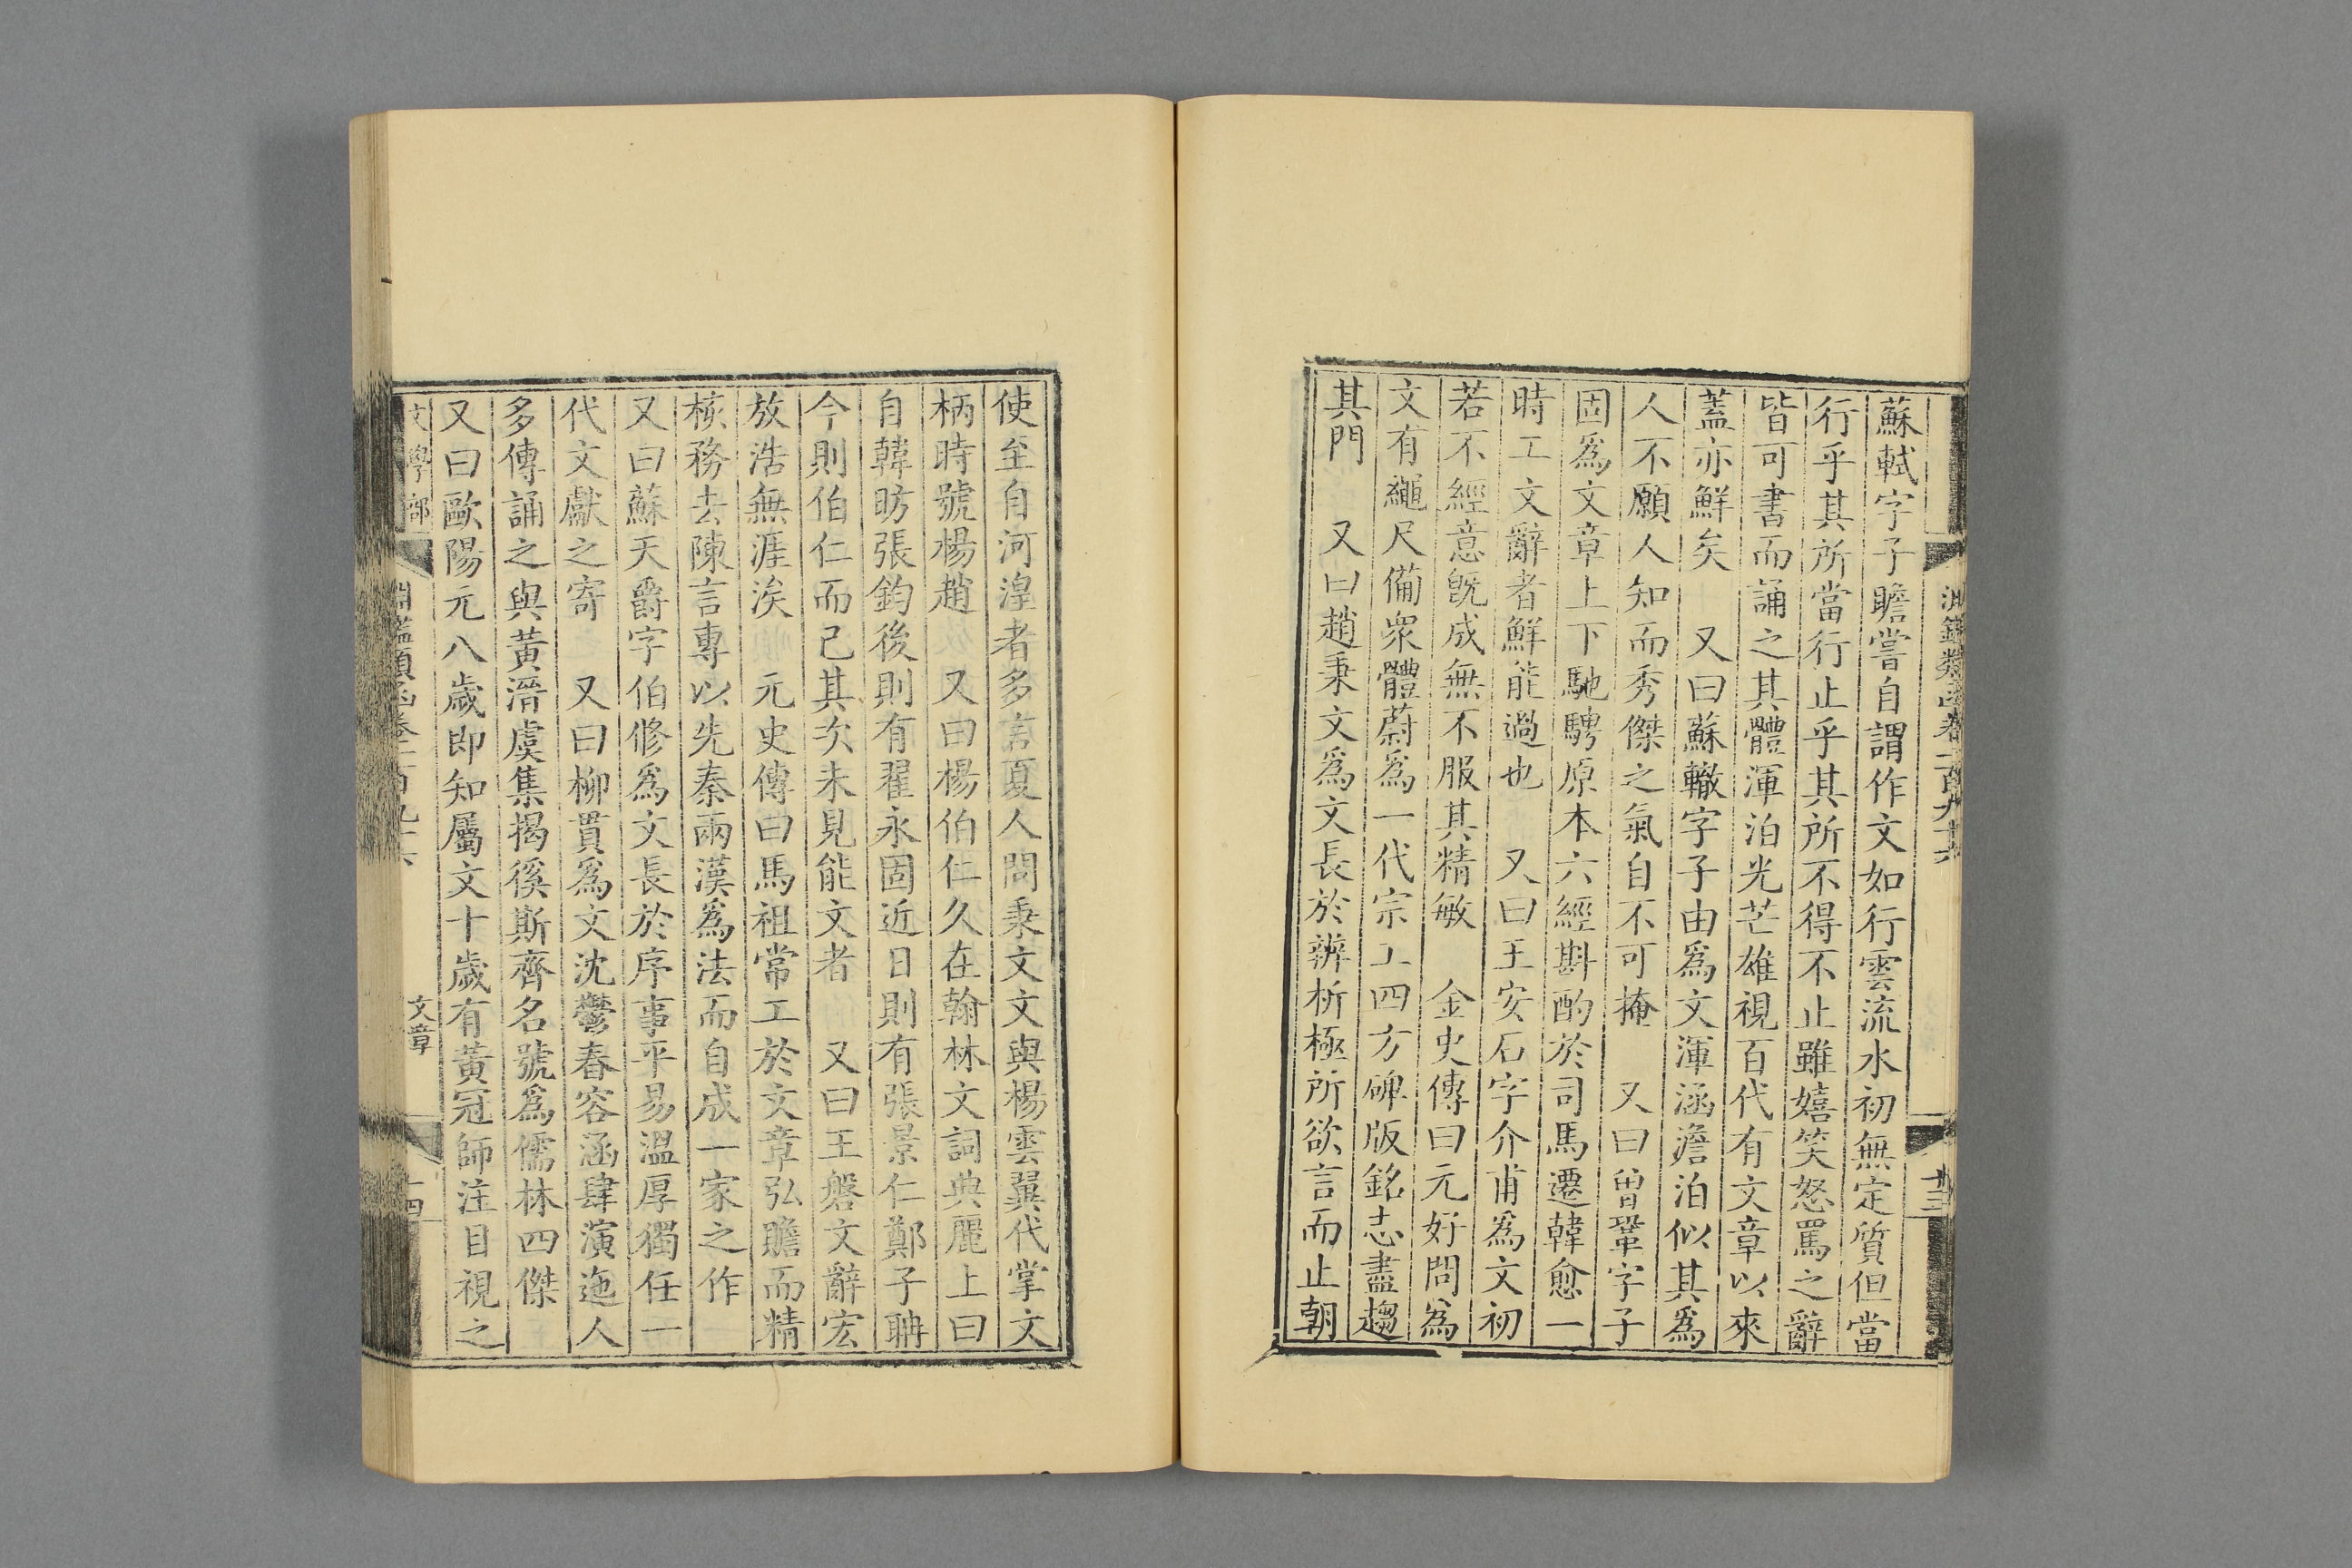 蘇軾字子瞻嘗自謂作文如行雲流水初無定質但當
行乎其所當行止乎其所不得不止雖嬉笑怒罵之辭
皆可書而誦之其體渾泊光芒雄視百代有文章以來
蓋亦鮮矣　又曰蘇轍字子由爲文渾涵澹泊似其爲
人不願人知而秀傑之氣自不可掩　又曰曾鞏字子
固爲文章上下馳騁原本六經斟酌於司馬遷韓愈一
時工文辭者鮮能過也　又曰王安石字介甫爲文初
若不經意旣成無不服其精敏　金史傳曰元好問爲
文有繩尺備衆體蔚爲一代宗工四方碑版銘志盡趨
其門　又曰趙秉文爲文長於辨析極所欲言而止朝
使至自河湟者多言夏人問秉文文與楊雲翼代掌文
柄時號楊趙　又曰楊伯仁久在翰林文詞典麗上曰
自韓昉張鈞後則有翟永固近日則有張景仁鄭子聃
今則伯仁而已其次未見能文者　又曰王磐文辭宏
放浩無涯涘　元史傳曰馬祖常工於文章弘贍而精
核務去陳言專以先秦兩漢爲法而自成一家之作
又曰蘇天爵字伯修爲文長於序事平易溫厚獨任一
代文獻之寄　又曰柳貫爲文沈鬱春容涵肆演迤人
多傳誦之與黃溍虞集揭徯斯齊名號爲儒林四傑
又曰歐陽元八歲即知屬文十歲有黃冠師注目視之
文學部
文章